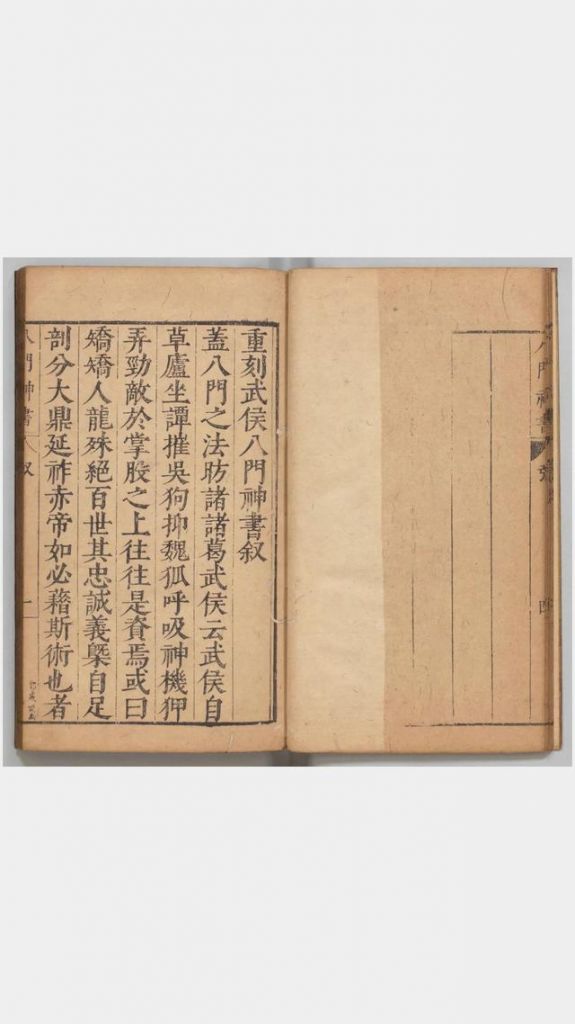 重刻武侯八門神書叙
蓋八門之法昉諸諸葛武侯云武侯自
草廬坐譚摧吳狗抑魏狐呼吸神機狎
弄勁敵於掌股之上往往是資焉或曰
矯矯人龍殊絕百世其忠誠義槩自足
剖分大鼎延祚赤帝如必藉斯術也者
八門神書 叙 一
八門神書
四